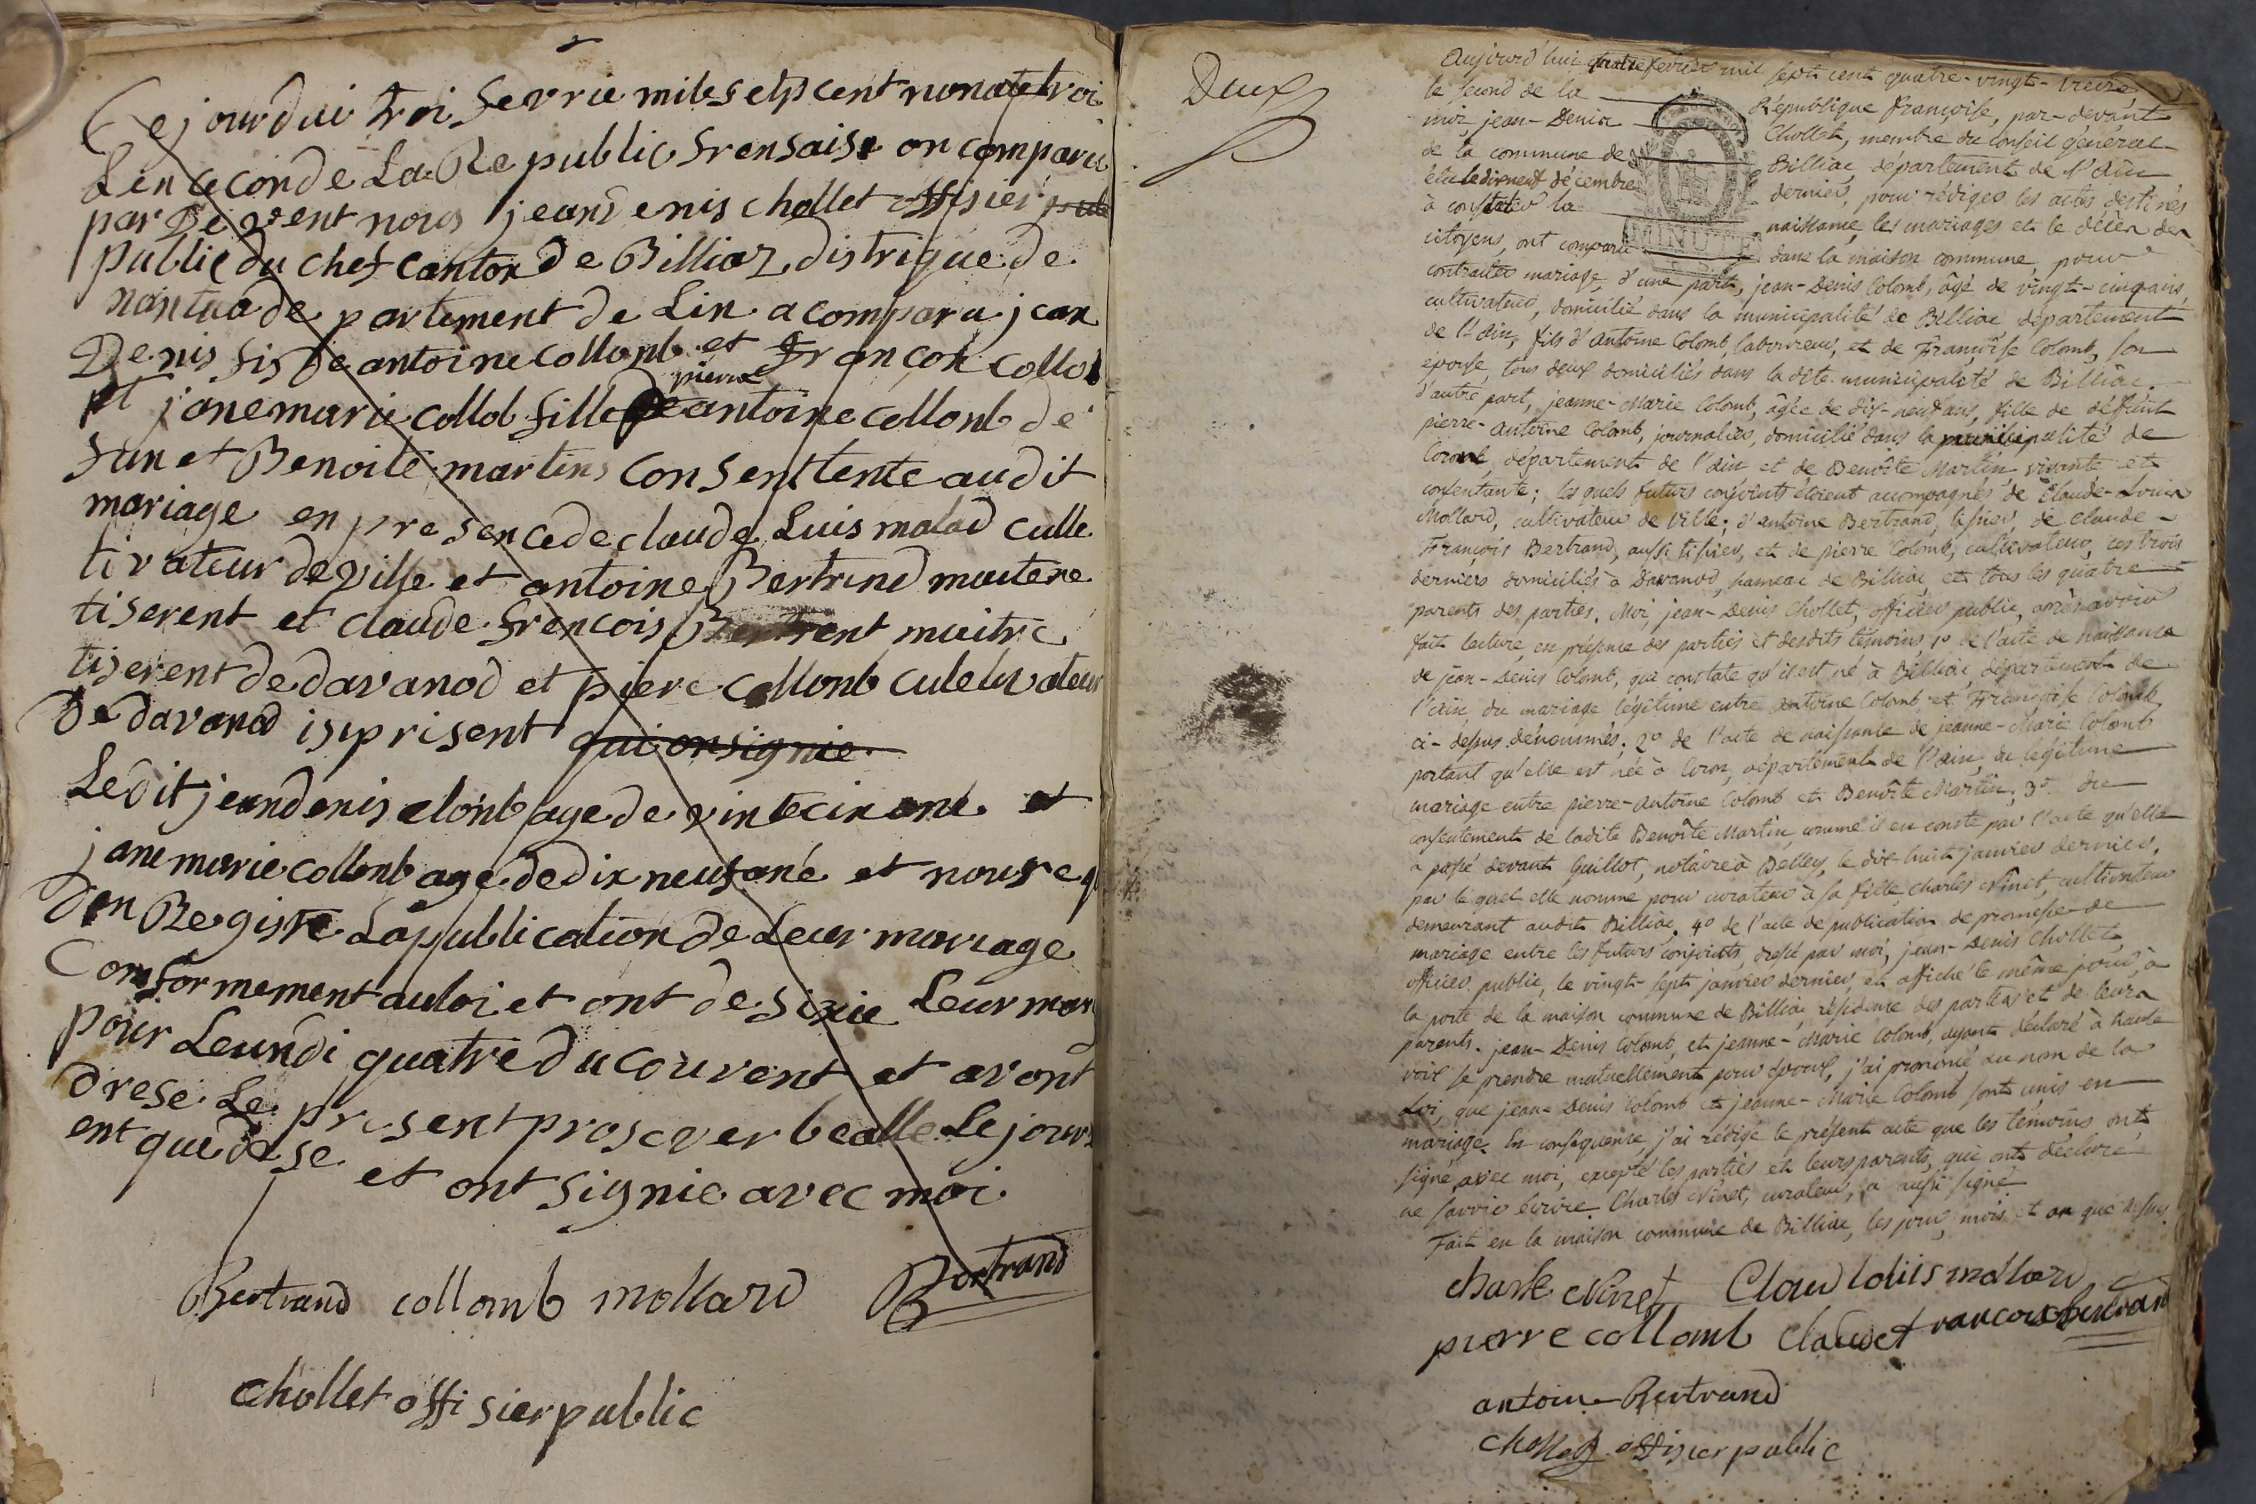 Ce jourdui troi fevrie mil setp cent nonate troi
Len ceconde La Re public frensaise on comparu
par De vent nous jean denis chollet offisier pub
public du chef canton De Billiaz distrique de
nantua de partement de Lin a comparu jean
Denis fis De antoine collonb et françoise collob
et jane marie collob fille De pierre antoine collonb de
fun et Benoite martins consenttente audit
mariage en presence de claude Luis malad culle
tivateur de ville et antoine Bertrend maitere
tiserent et claude francois Bertrent maitre
tiserent de davanod et piere collonb culetivateur
De davanod isi prisent qui on signie
Ledit jean denis colonb age de vintecin ané et
jane marie collonb age de dix neuf ané et nous re q
don Registre La publication de Leur mariage
Comformement au loi et ont desixie Leur mari
pour Leundi quatre du couvent et avont
drese Le present prosever bealle Le jour
ent que dese et ont signie avec moi
Bertrand collomb mollard Bertrand
chollet offisier public
Deux
Aujourd'hui quatre fevrier mil sept cent quatre-vingt-treize
le second de la République françoise, par-devant
moi, jean-Denis Chollet, membre du conseil général
de la commune de Billiac, département de l'ain
élu le dixneuf décembre dernier, pour rédiger les actes destinés
à constater la naissance, les mariages et le décès des
MINUTE
citoyens, ont comparu dans la maison commune, pour
contracter mariage, d'une part, jean-Denis Colomb, âgé de vingt-cinq ans,
cultivateur, domicilié dans la municipalité de Billiac département
de l'ain, fils d'antoine Colomb, laboureur, et de Françoise Colomb, son
epouse, tous deux domiciliés dans la dite municipalité de Billiac.
d'autre part, jeanne-Marie Colomb, âgée de dix-neuf ans, fille de défunt
pierre-antoine Colomb, journalier, domicilié dans la municipalité de
département de l'ain et de Benoîte Martin vivante et
consentante; lesquels futurs conjoints étoient accompagnés de Claude-Louis
Mollard, cultivateur de Ville; d'antoine Bertrand, tissier, de claude-
François Bertrand, aussi tissier, et de pierre Colomb, cultivateur, ces trois
derniers domiciliés à Davanod, hameau de Billiac, et tous les quatre
parents des parties. Moi, jean-Denis Chollet, officier public, après avoir
fait lecture, en présence des parties et desdits témoins, 1° de l'acte de naissance
de jean-Denis Colomb, qui constate qu'il est né à Billiac département de
l'ain, du mariage légitime entre antoine Colomb et Françoise Colomb
ci-dessus dénommés; 2° de l'acte de naissance de jeanne-Marie Colomb
portant qu'elle est née à département de l'ain, du légitime
mariage entre pierre-antoine Colomb et Benoîte Martin; 3° du
consentement de ladite Benoîte Martin, comme il en conste par l'acte qu'elle
a passé devant Guillot, notaire à Belley, le dix-huit janvier dernier,
par lequel elle nomme pour curateur à sa fille, charles Ninet, cultivateur
demeurant audit Billiac. 4° de l'acte de publication de promesse de
mariage entre les futurs conjoints, dressé par moi, jean-Denis Chollet
officier public, le vingt-sept janvier dernier, et affiché le même jour, à
la porte de la maison commune de Billiac, résidence des parties et de leurs
parents. jean-Denis Colomb, et jeanne-Marie Colomb, ayant déclaré à haute
voix se prendre mutuellement pour époux, j'ai prononcé au nom de la
Loi, que jean-Denis Colomb et jeanne-Marie Colomb sont unis en
mariage. En conséquence, j'ai rédigé le présent acte que les témoins ont
signé avec moi, excepté les parties et leurs parents, qui ont déclaré
ne savoir écrire. Charles Ninet, curateur, a aussi signé
Fait en la maison commune de Billiac, les jour, mois et an que dessus
charle Ninet Claud louis molard
pierre collomb Claude francois bertrand
antoine Bertrand
chollet offisier public